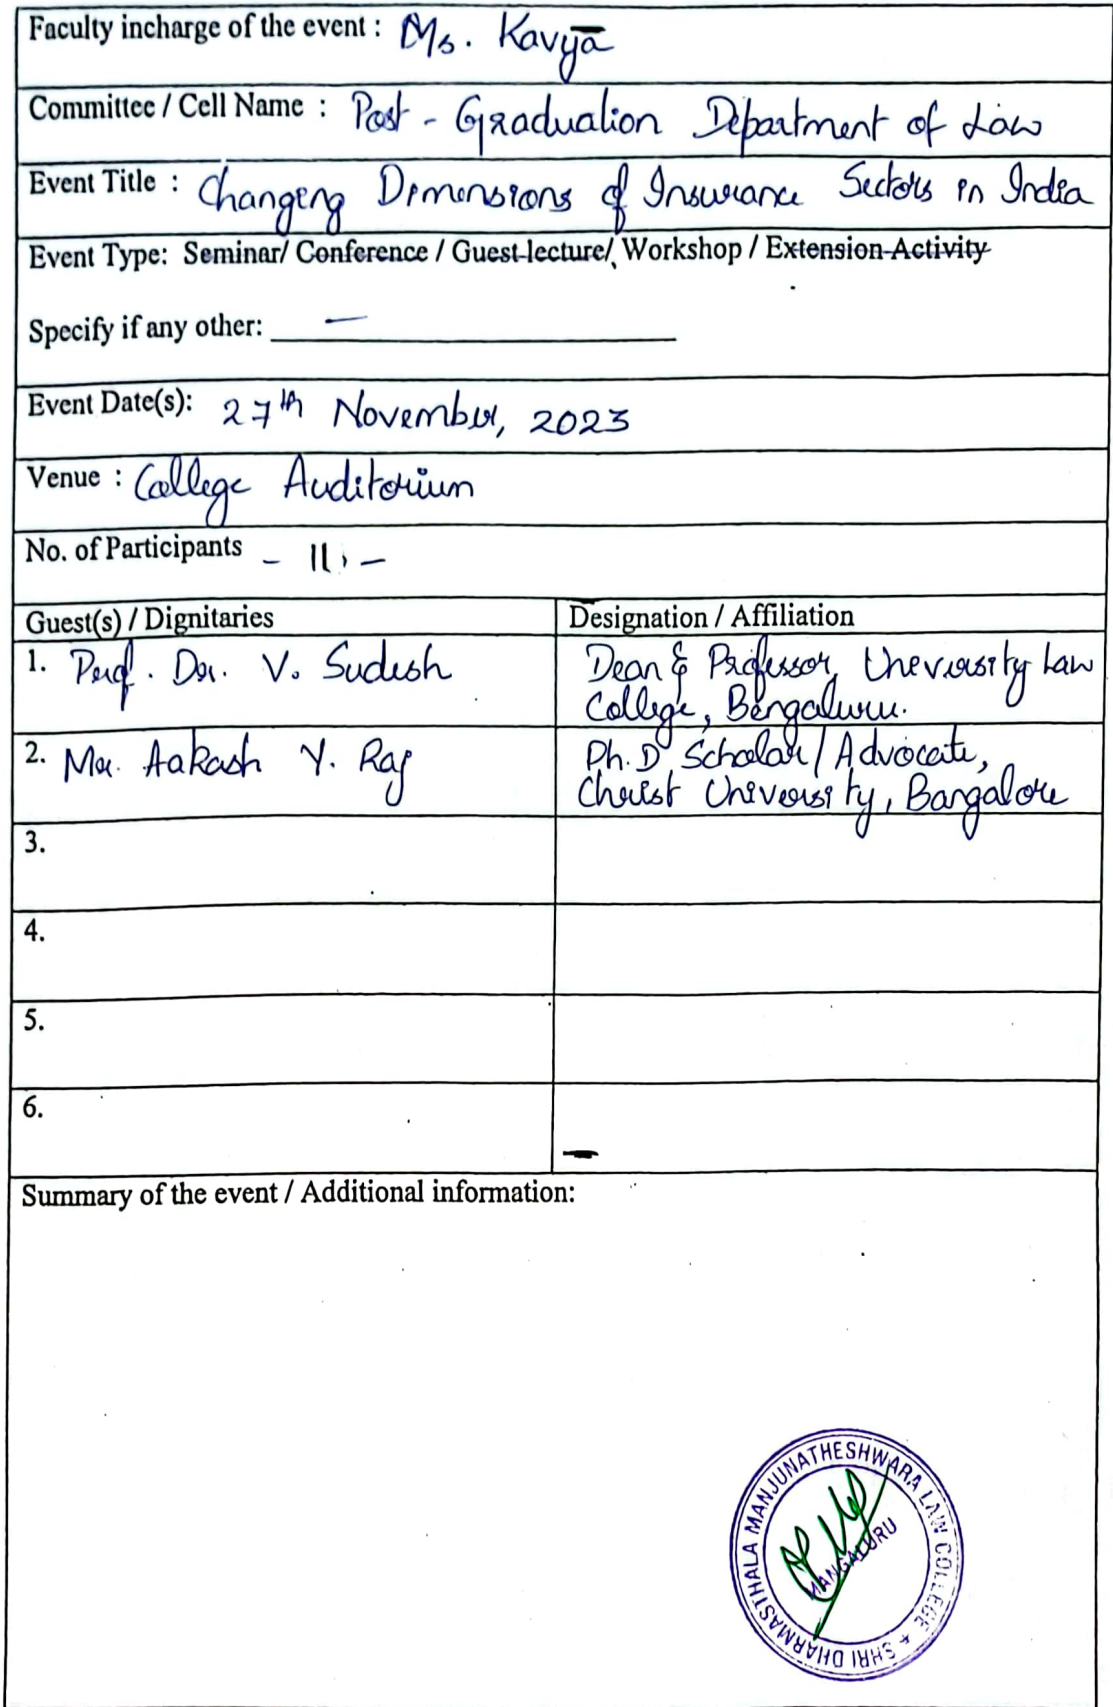 Faculty incharge of the event : Ms. Kavya
Committee / Cell Name : Post - Graduation Department of Law
Event Title : Changing Dimensions of Insurance Sectors in India
Event Type: Seminar/ Conference / Guest lecture/ Workshop / Extension Activity
Specify if any other: —
Event Date(s): 27th November, 2023
Venue : College Auditorium
No. of Participants
Guest(s) / Dignitaries Designation / Affiliation
1. Prof. Dr. V. Sudesh Dean & Professor, University Law
College, Bengaluru.
2. Mr. Aakash Y. Raj Ph.D Scholar / Advocate,
Christ University, Bangalore
3.
4.
5.
6.
Summary of the event / Additional information:
SHRI DHARMASTHALA MANJUNATHESHWARA LAW COLLEGE
MANGALURU